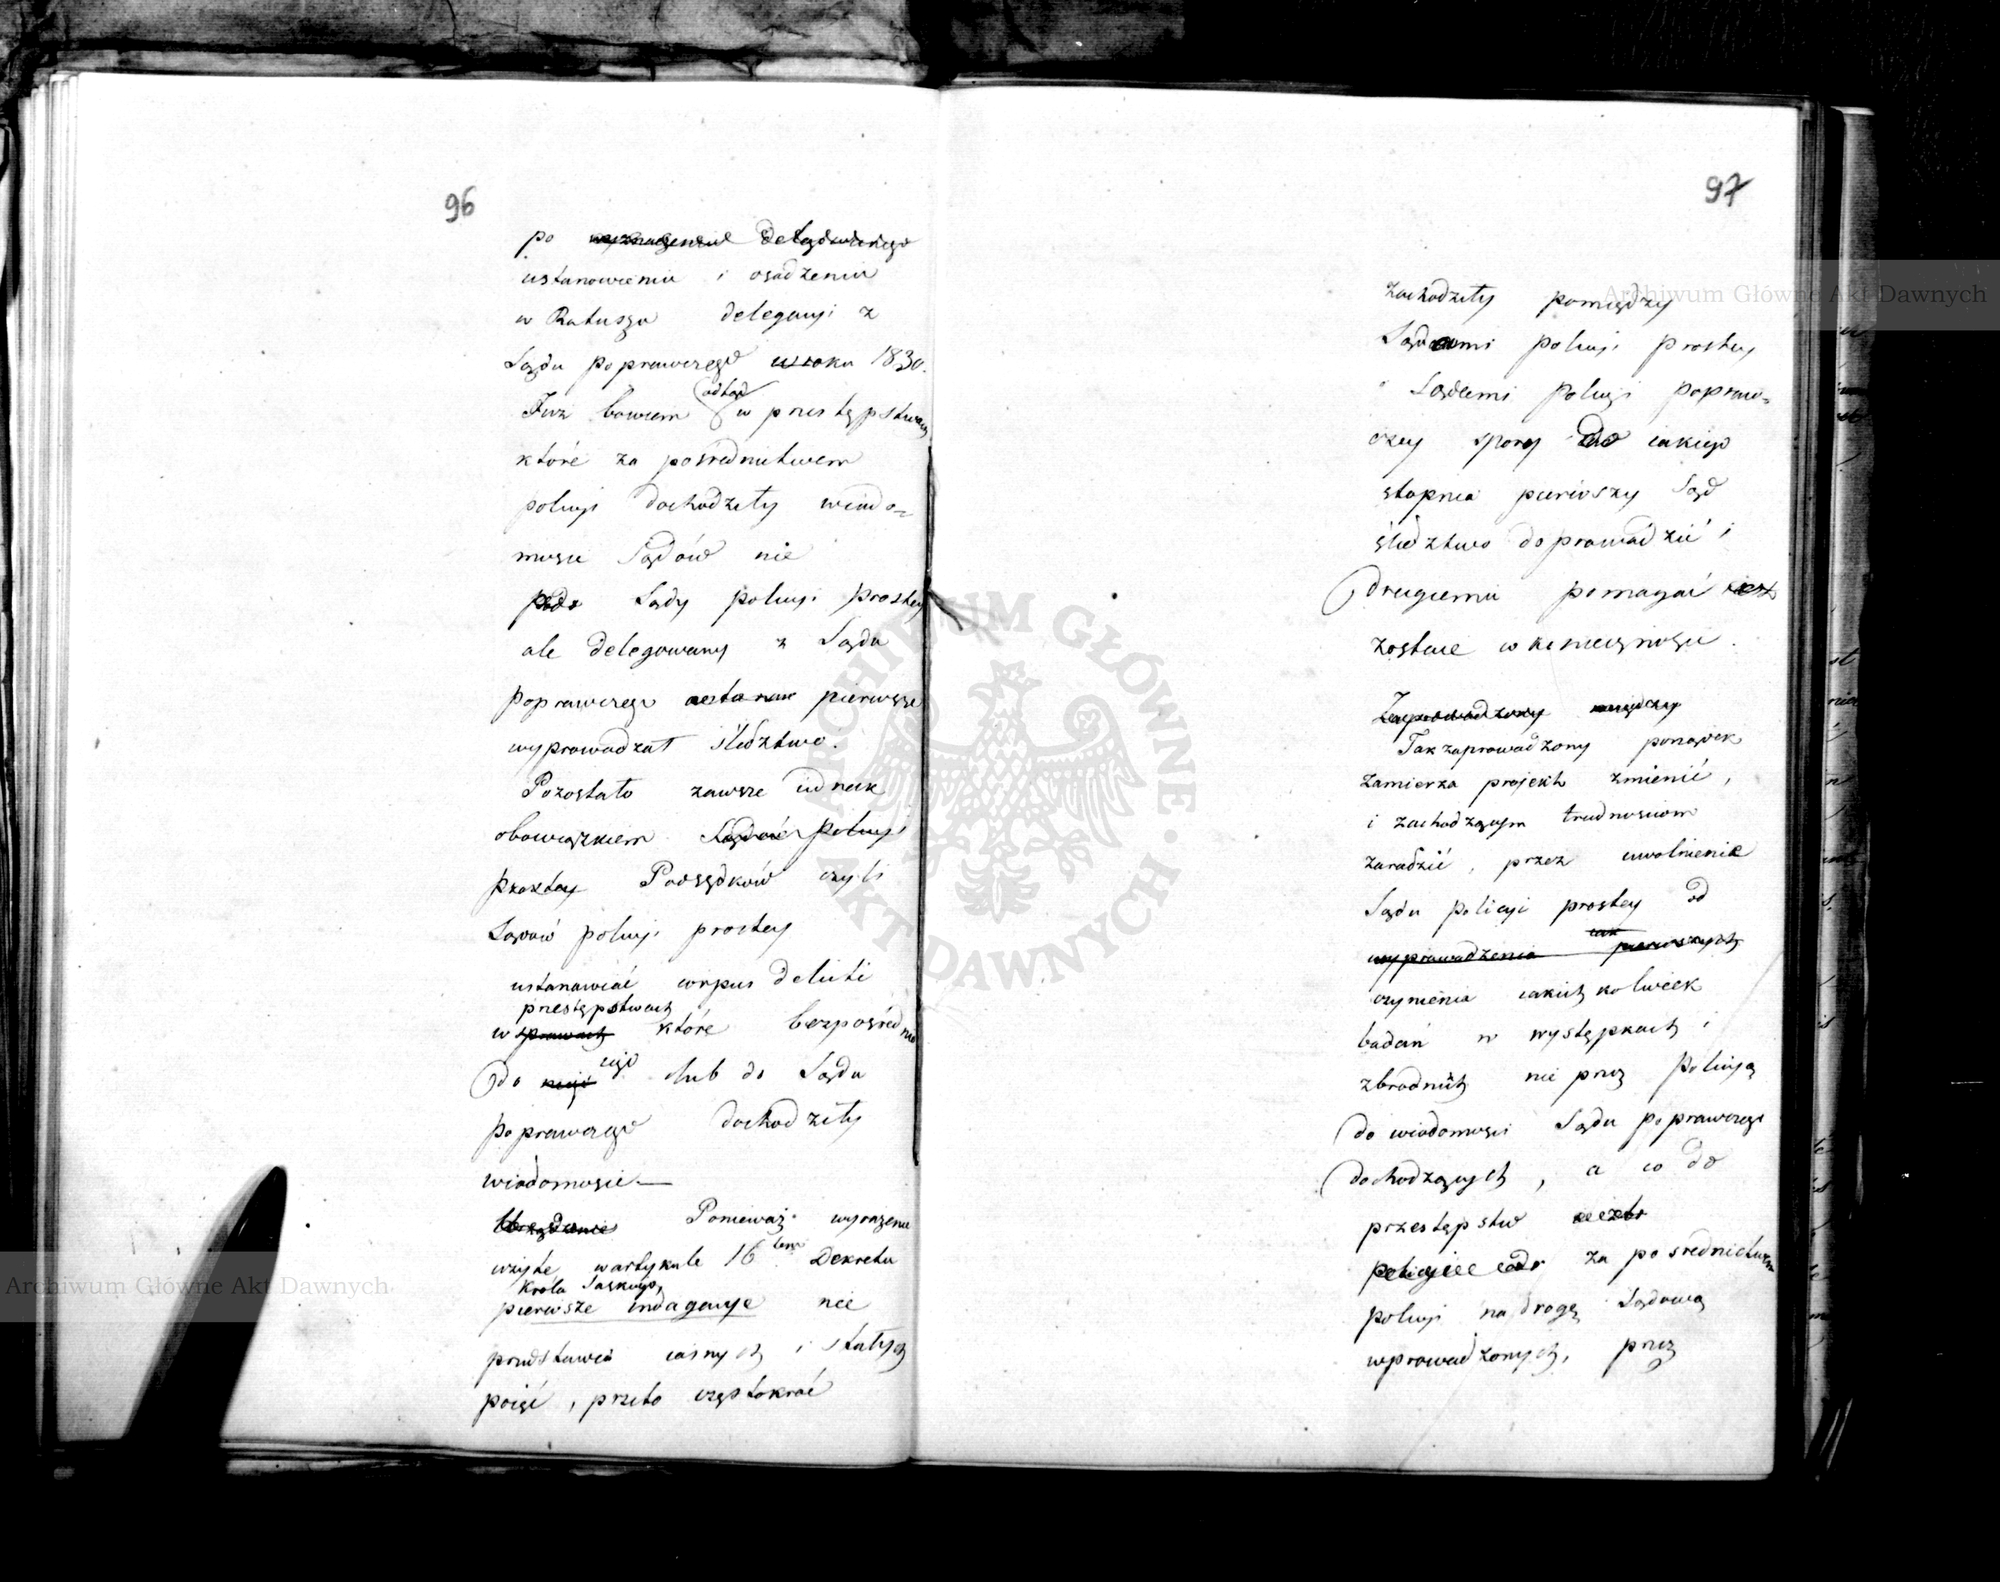 96
po wyznaczeniu Delegowanego
ustanowieniu i osadzeniu
w Ratuszu delegacyi z
Sądu poprawczego w roku 1830.
odtąd
Już bowiem w przestępstwach
które za pośrednictwem
policyi dochodziły wiado=
mości Sądów nie
Sądy policyi prostey
ale delegowany z Sądu
poprawczego pierwsze
wyprowadzał śledztwo.
Pozostało zawsze iednak
obowiązkiem Sądów policyi
prostey Podsędków czyli
Sądów policyi prostey
ustanawiać corpus delicti
przestępstwach
w sprawach które bezpośrednio
iego
do lub do Sądu
poprawczego dochodziły
wiadomości.—
Ponieważ wyrażenie
użyte w artykule 16 tem Dekretu
Króla Saskiego,
pierwsze indagacye nie
przedstawia iasnych i stałych
poięć, przeto częstokroć
97
zachodziły pomiędzy
Sądami policyi prostey
i Sądami policyi popraw=
czey spory do iakiego
stopnia pierwszy Sąd
śledztwo doprowadzić i
drugiemu pomagać
zostaie w konieczności.
Zaprowadzony między
Tak zaprowadzony porządek
zamierza projekt zmienić,
i zachodzącym trudnościom
zaradzić, przez uwolnienie
Sądu Policyi prostey od
iak
wyprowadzenia pierwszych
czynienia iakichkolwiek
badań w występkach i
zbrodniach nie przez Policyą
do wiadomości Sądu poprawczego
dochodzących, a co do
przestępstw
za pośrednictwem
policyi na drogę Sądową
wprowadzonych, przez